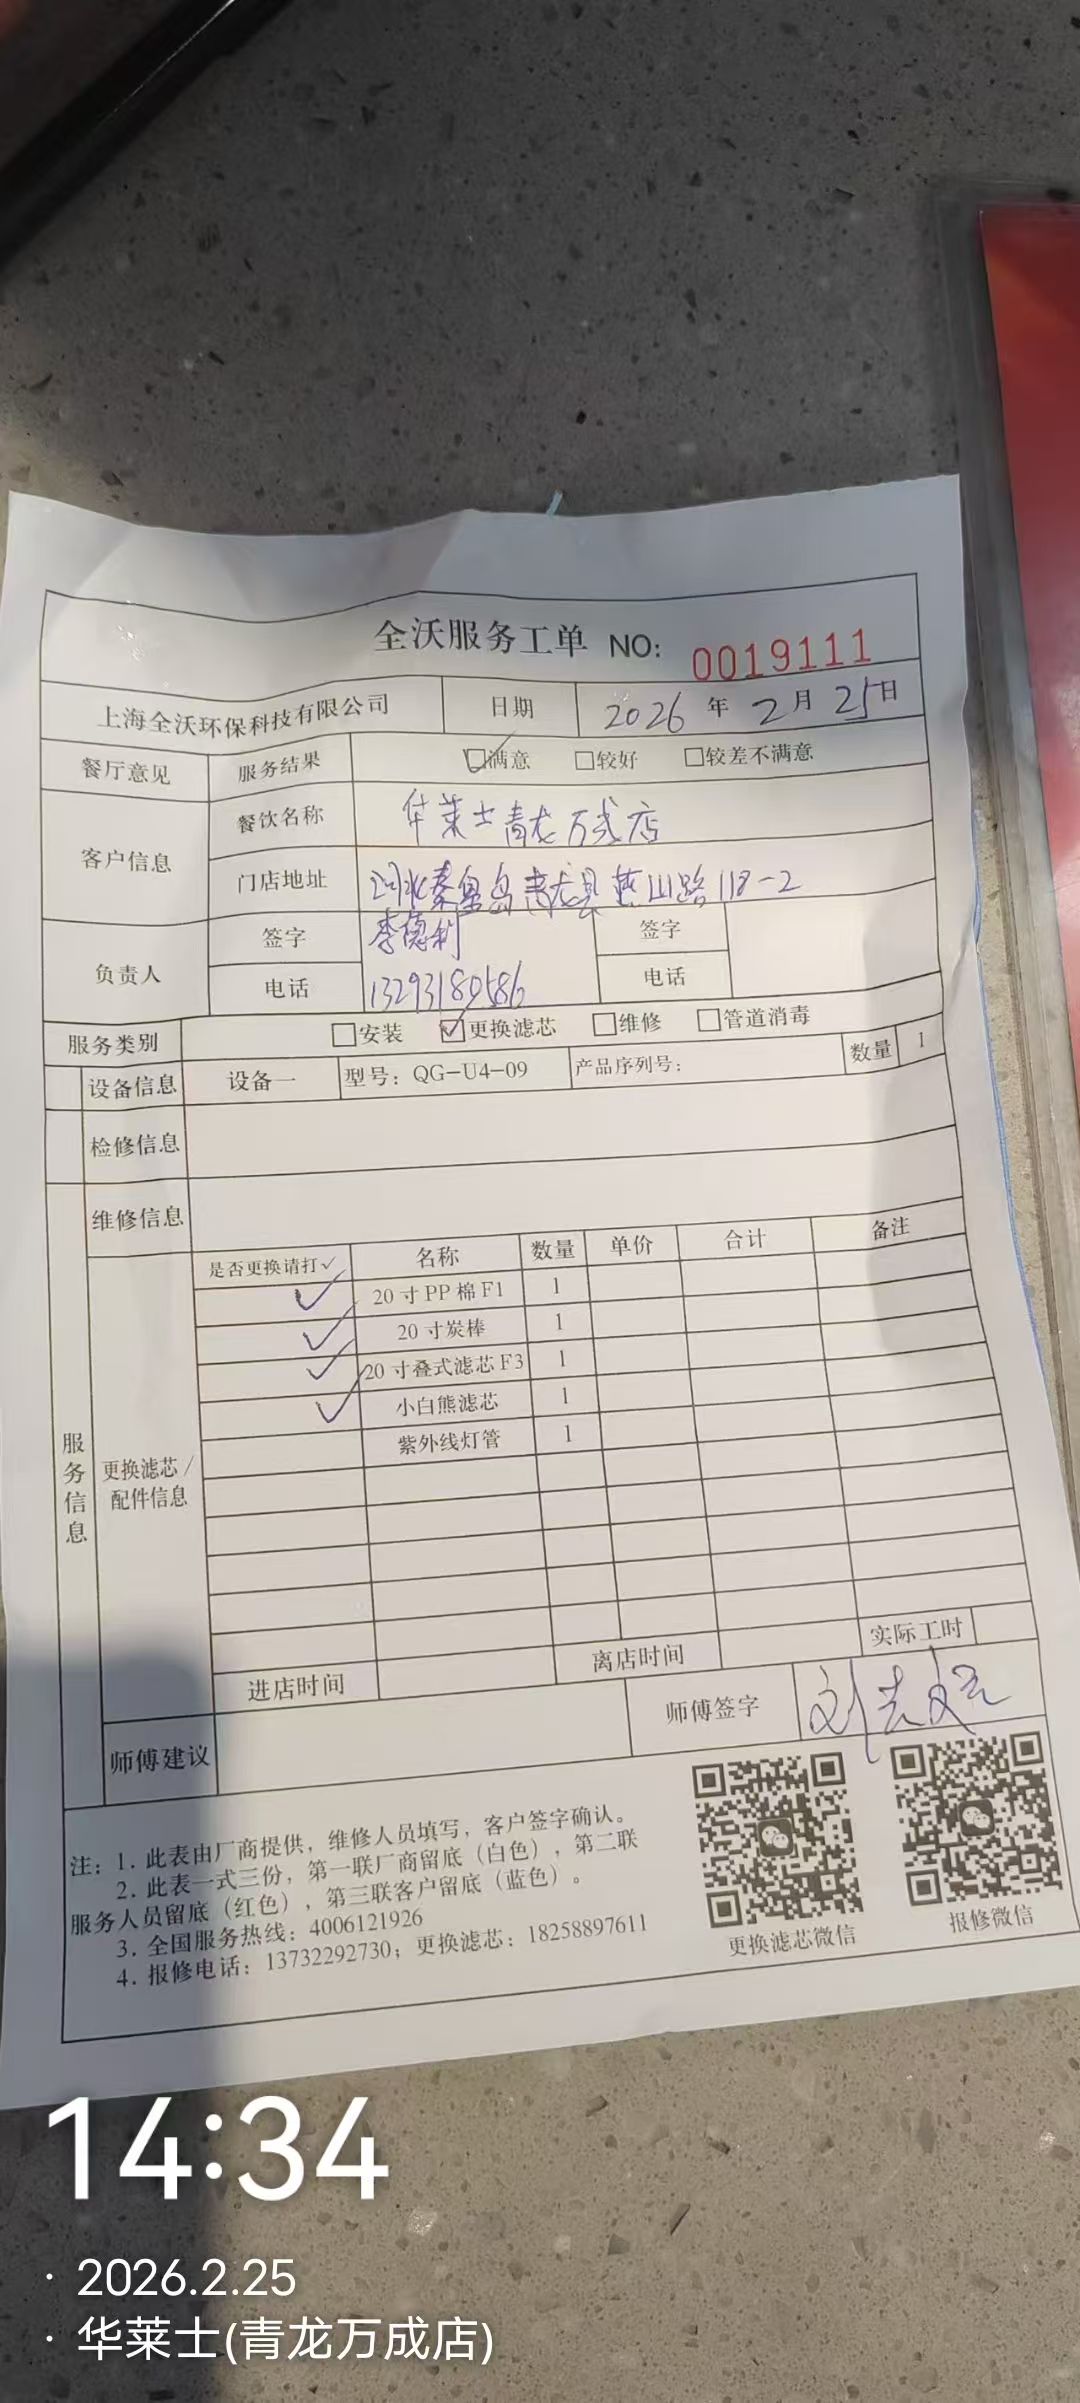 全沃服务工单 NO: 0019111
上海全沃环保科技有限公司 日期 2026 年 2 月 25 日
餐厅意见 服务结果 满意 较好 较差不满意
客户信息 餐饮名称 华莱士青龙万成店
门店地址 河北秦皇岛青龙县燕山路118-2
负责人 签字 李德利 签字
电话 13293180586 电话
服务类别 安装 更换滤芯 维修 管道消毒
设备信息 设备一 型号：QG-U4-09 产品序列号： 数量 1
检修信息
维修信息
服务信息
更换滤芯/
配件信息
是否更换请打✓ 名称 数量 单价 合计 备注
✓ 20寸PP棉F1 1
✓ 20寸炭棒 1
✓ 20寸叠式滤芯F3 1
✓ 小白熊滤芯 1
紫外线灯管 1
进店时间 离店时间 实际工时
师傅建议 师傅签字 刘
注：1. 此表由厂商提供，维修人员填写，客户签字确认。
2. 此表一式三份，第一联厂商留底（白色），第二联
服务人员留底（红色），第三联客户留底（蓝色）。
3. 全国服务热线：4006121926
4. 报修电话：13732292730；更换滤芯：18258897611
更换滤芯微信 报修微信
14:34
· 2026.2.25
· 华莱士(青龙万成店)